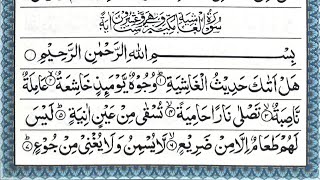 سورة الغاشية مكية وهي ست وعشرون آية
بِسْمِ اللهِ الرَّحْمٰنِ الرَّحِيْمِ ○
هَلْ اَتٰىكَ حَدِيْثُ الْغَاشِيَةِ ۝۱ وُجُوْهٌ يَّوْمَىِٕذٍ خَاشِعَةٌ ۝۲ عَامِلَةٌ
نَّاصِبَةٌ ۝۳ تَصْلٰى نَارًا حَامِيَةً ۝۴ تُسْقٰى مِنْ عَيْنٍ اٰنِيَةٍ ۝۵ لَيْسَ
لَهُمْ طَعَامٌ اِلَّا مِنْ ضَرِيْعٍ ۝۶ لَّا يُسْمِنُ وَلَا يُغْنِيْ مِنْ جُوْعٍ ۝۷